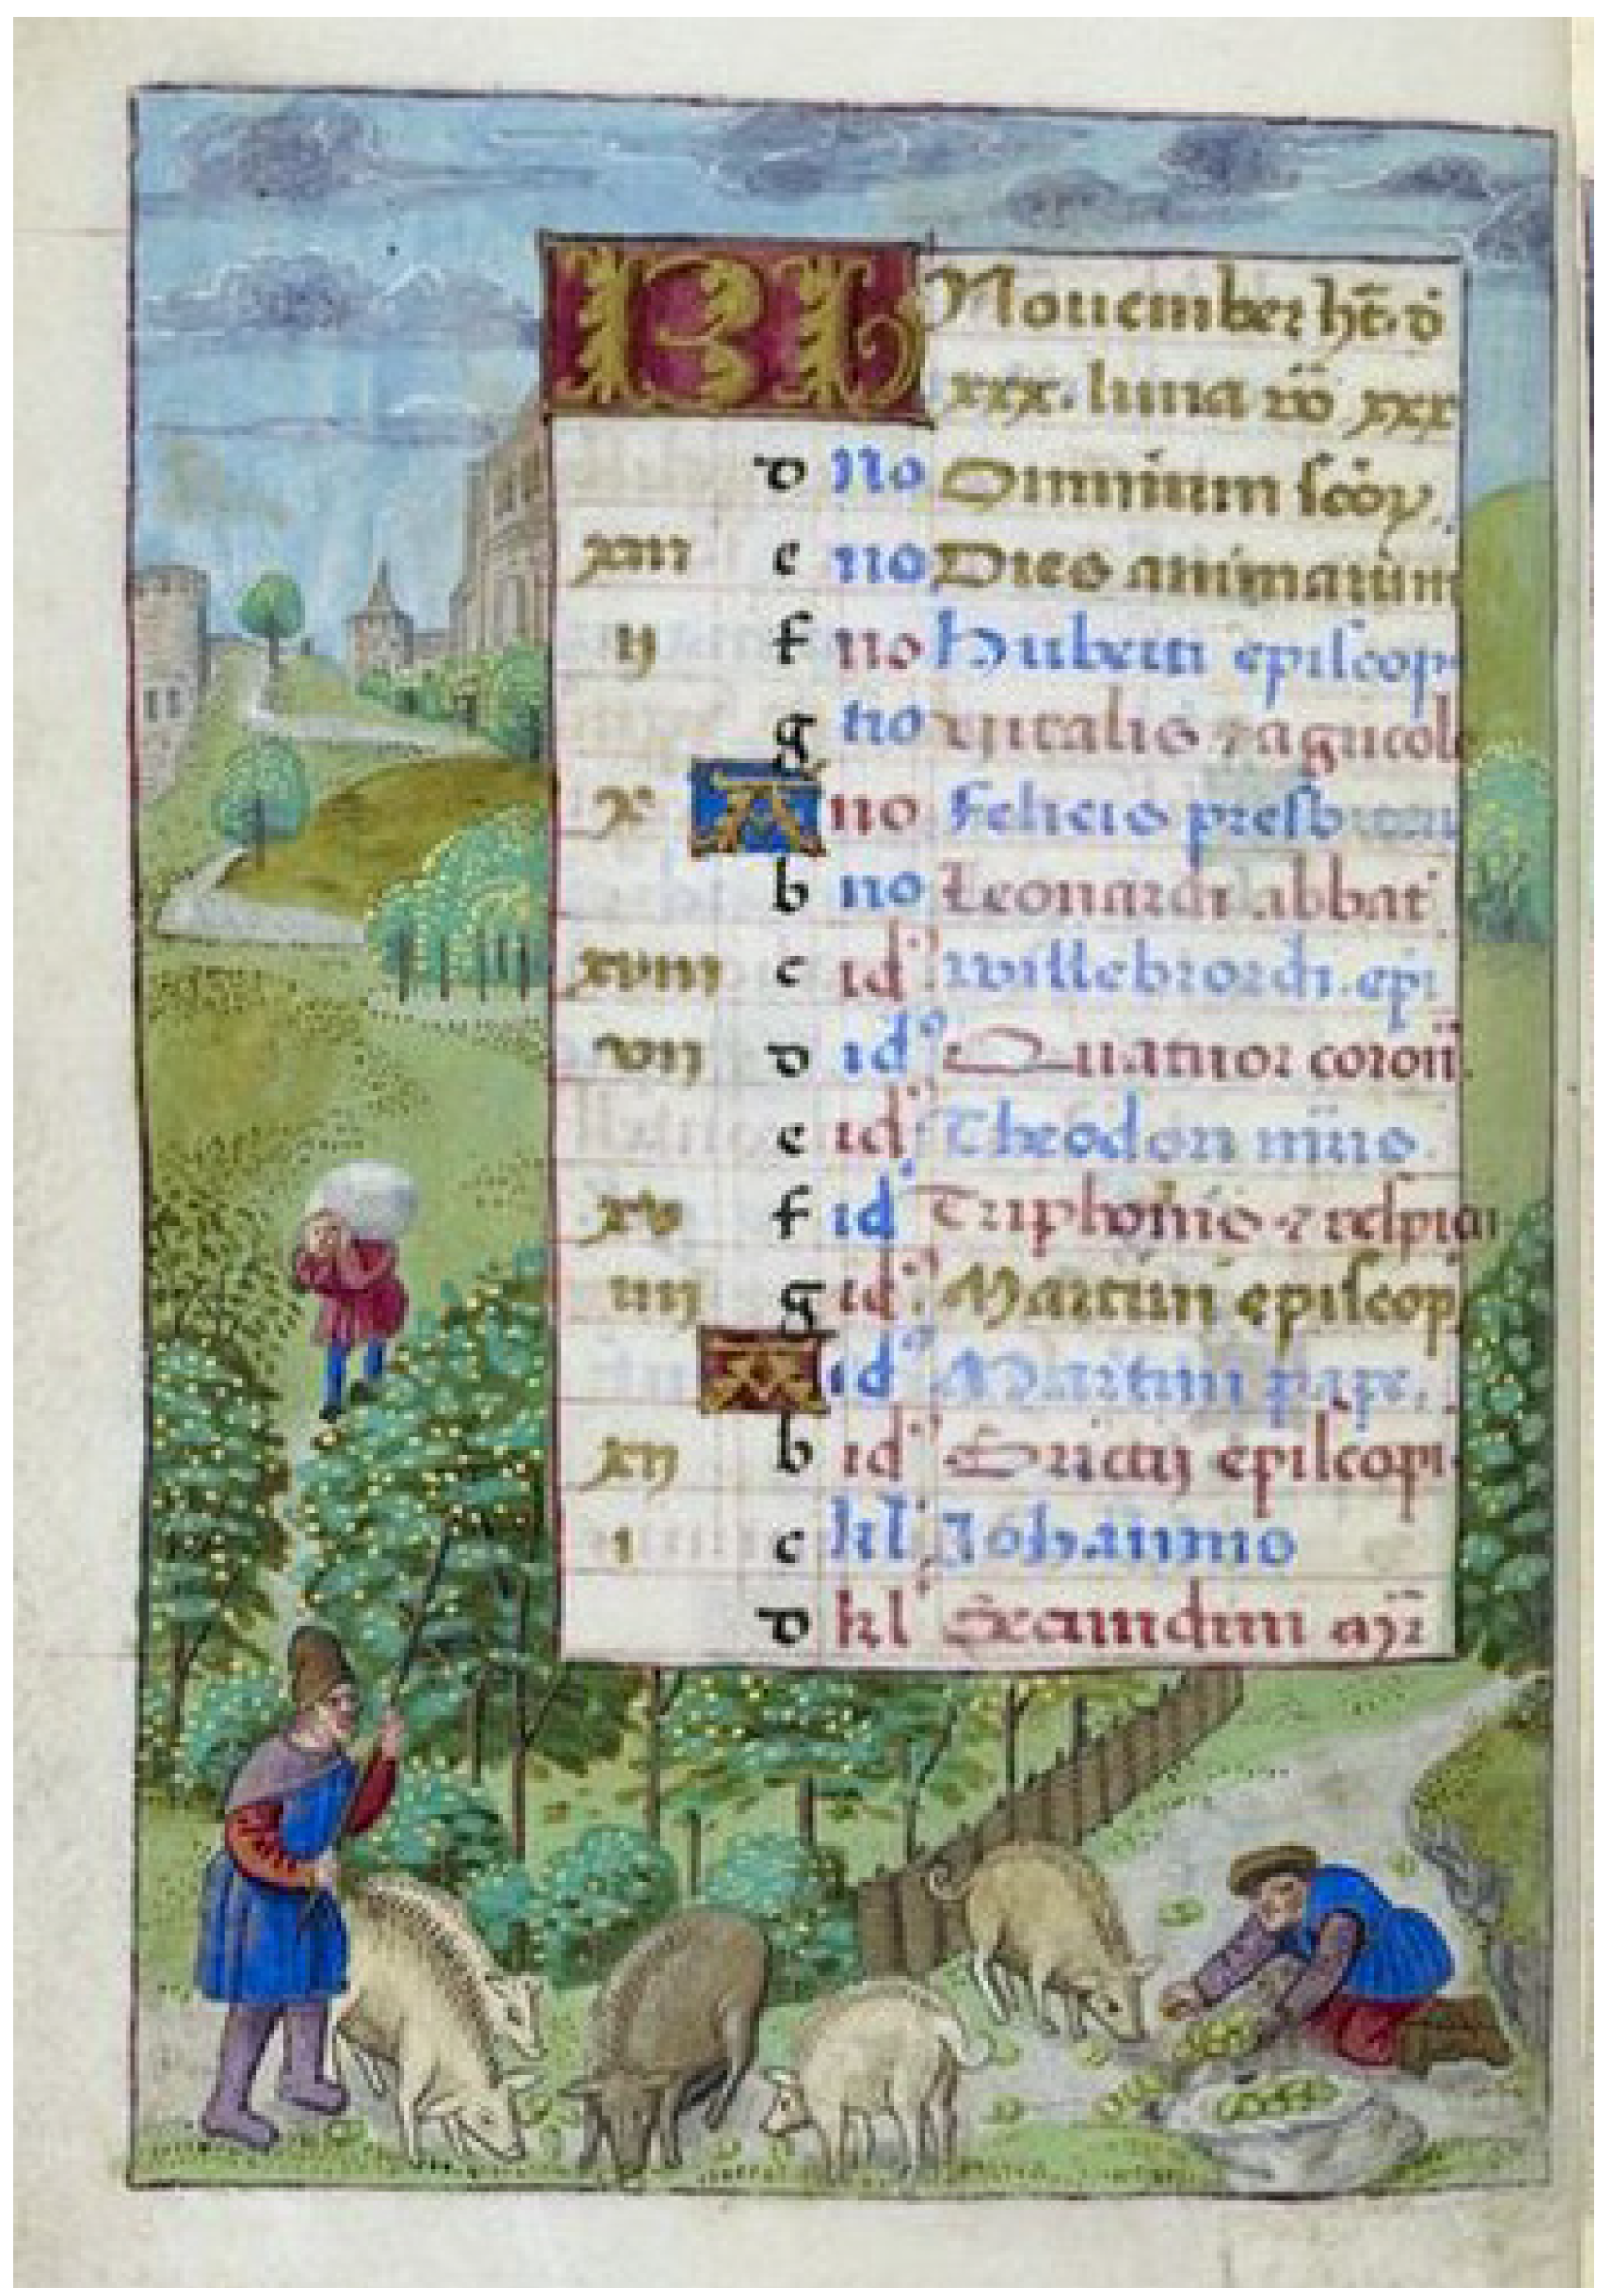 KL Nouember hēt. d
xxx. luna vō xxx
d no Omnium scōꝝ.
xiii e no Dies animarum
ij f no Huberti episcop
g no Vitalis ⁊ agricol
x A no Felicis presb
b no Leonardi abbat
xviii c id Willebrordi. epi
vii d id Quatuor coron̄
e id Theodori
xv f id Triphonis ⁊ respici
iiij g id Martini episcop
A id Martini pape.
xij b id Bricij episcopi
c kl Johannis
d kl